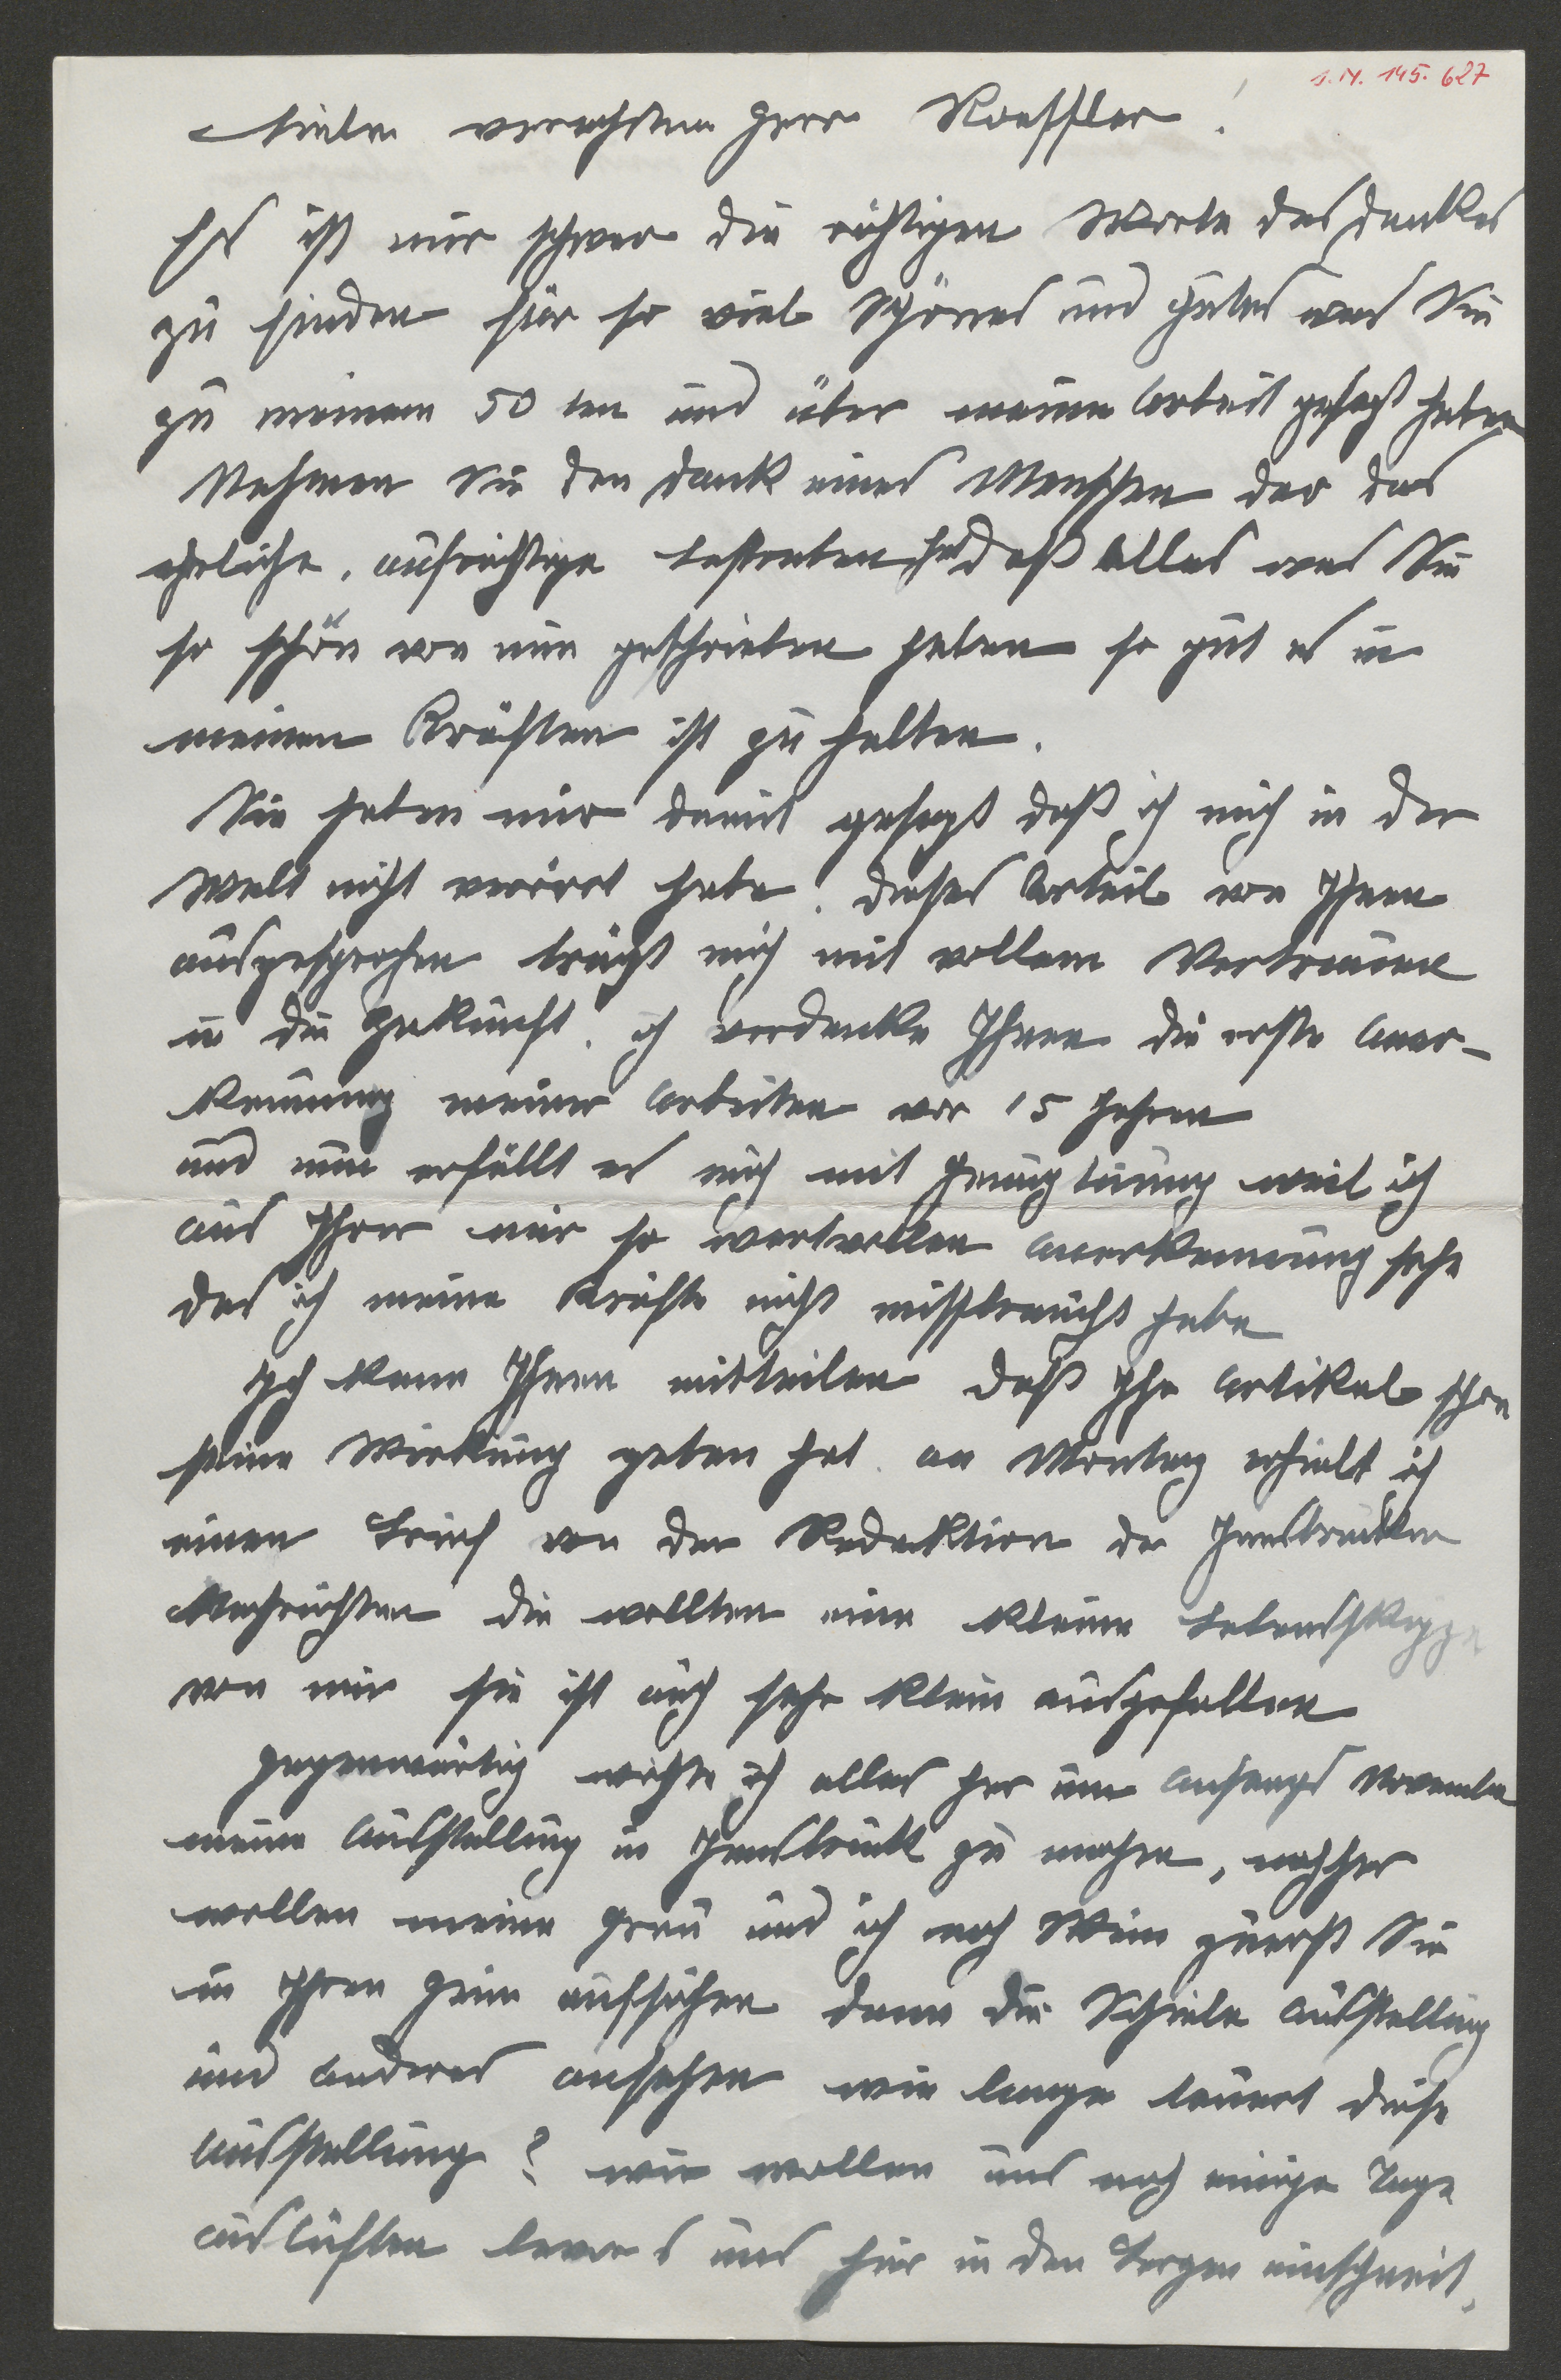 I.N. 145.627
Lieber verehrter Herr Roessler!
Es ist mir schwer die richtigen Worte des Dankes
zu finden für so viel Schönes und Gutes was Sie
zu meinem 50 ten und über meine Arbeit gesagt haben
Nehmen Sie den Dank eines Menschen der das
ehrliche, aufrichtige Bestreben hat daß Alles was Sie
so schön von mir geschrieben haben so gut es in
meinen Kräften ist zu halten.
Sie haben mir damit gesagt daß ich mich in der
Welt nicht verirrt habe. Dieses Urteil von Ihnen
ausgesprochen trägt mich mit vollem Vertrauen
in die Zukunft. ich verdanke Ihnen die erste Aner-
kennung meiner Arbeiten vor 15 Jahren
und nun erfüllt es mich mit Genugtuung weil ich
aus Ihrer mir so wertvollen Anerkennung sehe
das ich meine Kräfte nicht missbraucht habe
Ich kann Ihnen mitteilen daß Ihr Artikel schon
seine Wirkung geben hat. am Montag erhielt ich
einen Brief von der Redaktion der Innsbrucker
Nachrichten die wollten eine kleine Lebensskizze
von mir sie ist auch sehr klein ausgefallen
Gegenwärtig richte ich alles her um Anfangs November
meine Ausstellung in Innsbruck zu machen, nachher
wollen meine Frau und ich nach Wien zuerst Sie
in Ihrem Heim aufsuchen dann die Schiele Ausstellung
und anderes ansehen wie lange dauert diese
Ausstellung? wir wollen uns noch einige Tage
auslüften bevor s uns hier in den Bergen einschneit.